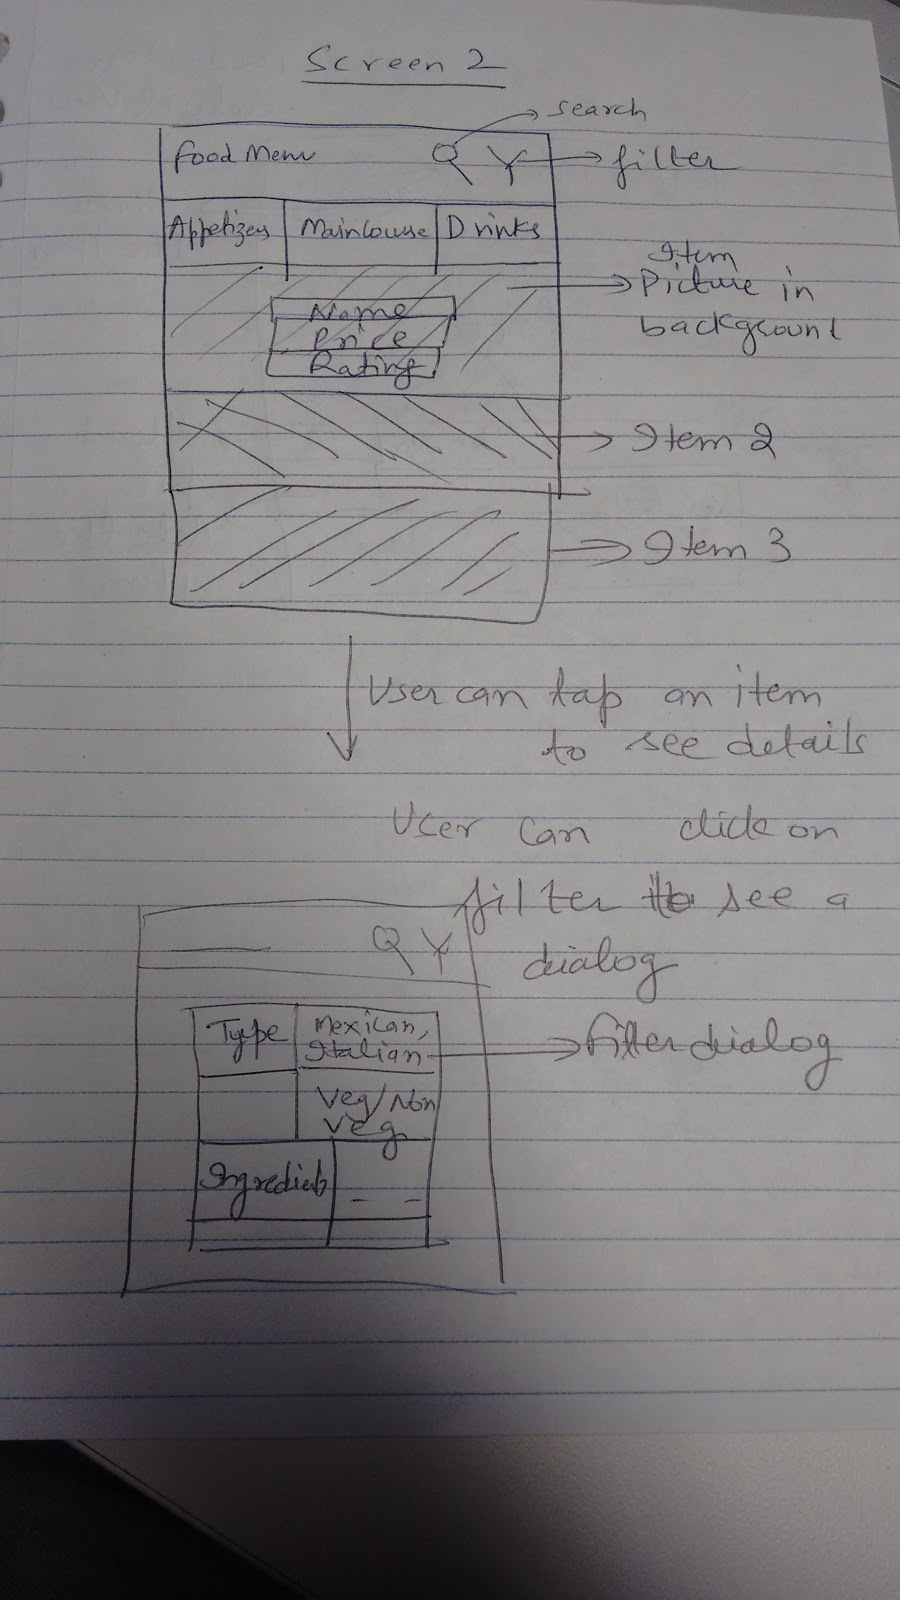 Screen 2
search
Food Menu
filter
Appetizers
Main Course
Drinks
Item
Picture in
background
Name
Price
Rating
Item 2
Item 3
User can tap an item
to see details
User can click on
filter to see a
dialog
Type
Mexican,
Italian
Filter dialog
Veg/Non
Veg
Ingredients